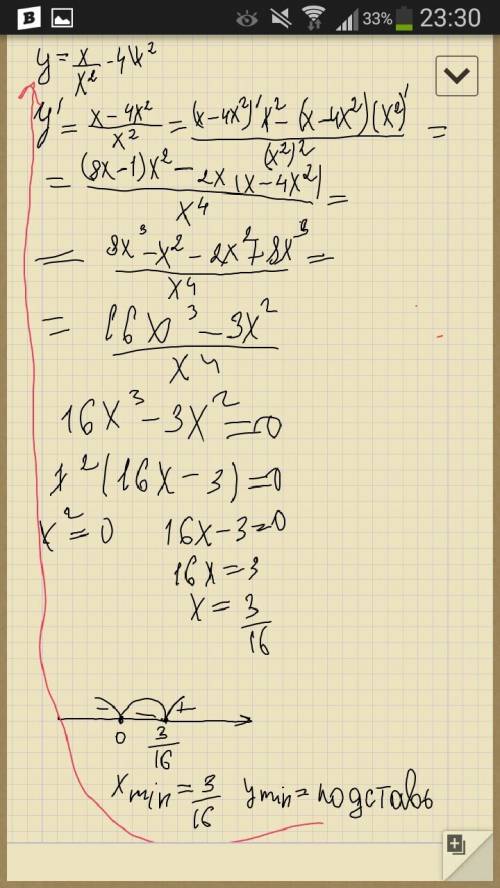 B 33% 23:30
y = x/x² - 4x²
y' = (x-4x²)/x² = ((x-4x²)'x² - (x-4x²)(x²)')/(x²)² =
= ((8x-1)x² - 2x(x-4x²))/x⁴ =
= (8x³-x² - 2x²+8x³)/x⁴ =
= (16x³ - 3x²)/x⁴
16x³ - 3x² = 0
x²(16x-3)=0
x² = 0 16x-3=0
16x = 3
x = 3/16
- - +
0 3/16
xmin = 3/16 ymin = подставь